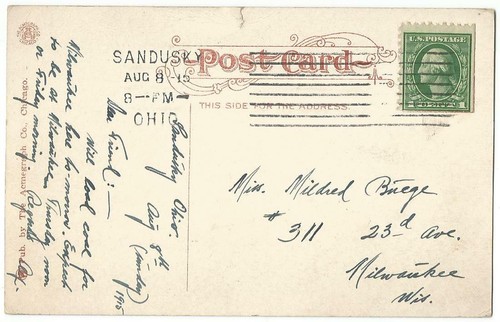 SANDUSKY
AUG 8-15
8-PM
OHIO
Post Card
THIS SIDE FOR THE ADDRESS.
U.S. POSTAGE
1 1
Pub. by The Acmegraph Co., Chicago.
Sandusky Ohio.
Aug 8th (Sunday) 1915
Dear Friend:-
Will look over for
Milwaukee here to-morrow. Expect
to be at Milwaukee Thursday noon
or Friday morning.
Regards
Miss. Mildred Buege
# 311 23-d Ave.
Milwaukee
Wis.